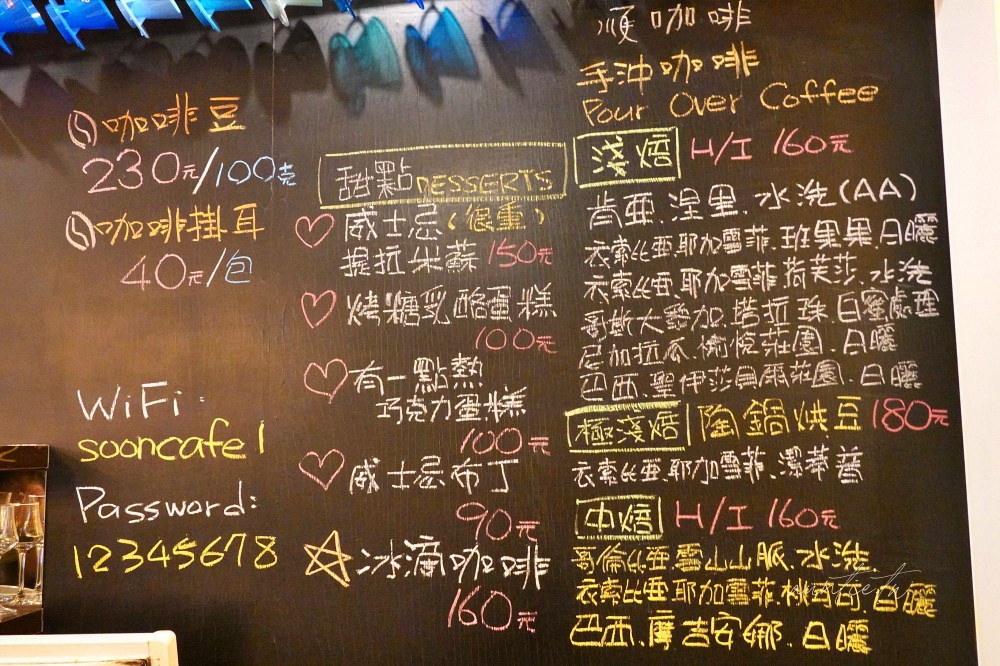 咖啡豆
230元/100克
咖啡掛耳
40元/包
WiFi:
sooncafe1
Password:
12345678
甜點 DESSERTS
威士忌(很重)
提拉米蘇 150元
烤糖乳酪蛋糕
100元
有一點熱
巧克力蛋糕
100元
威士忌布丁
90元
冰滴咖啡
160元
順咖啡
手沖咖啡
Pour Over Coffee
淺焙 H/I 160元
肯亞.涅里.水洗(AA)
衣索比亞.耶加雪菲.班果果.日曬
衣索比亞.耶加雪菲.荷芙莎.水洗
哥斯大黎加.塔拉珠.白蜜處理
尼加拉瓜.愉悅莊園.日曬
巴西.聖伊莎貝爾莊園.日曬
極淺焙 陶鍋烘豆 180元
衣索比亞.耶加雪菲.潔蒂普
中焙 H/I 160元
哥倫比亞.雪山山脈.水洗.
衣索比亞.耶加雪菲.桃可可.日曬
巴西.摩吉安娜.日曬